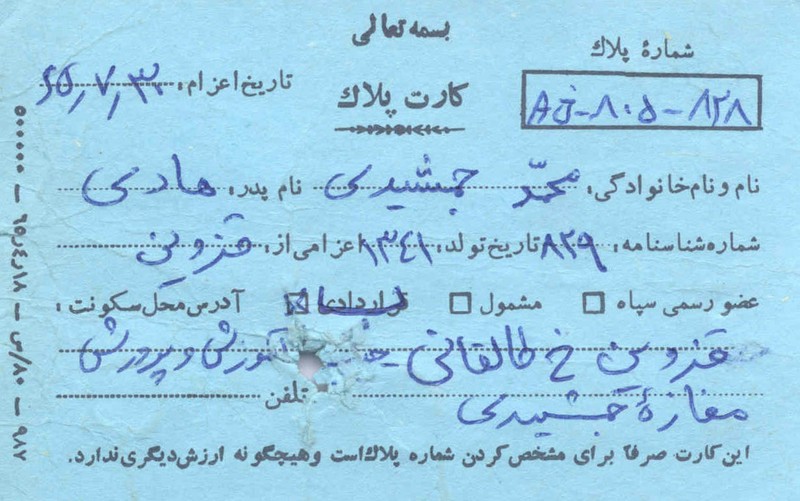 بسمه تعالی
شمارهٔ پلاک
A ق - ۸۰۵ - ۸۲۸
کارت پلاک
تاریخ اعزام: ۶۵٫۷٫۳۰
نام و نام خانوادگی: محمّد جمشیدی نام پدر: هادی
شماره شناسنامه: ۸۳۹ تاریخ تولد: ۱۳۴۱ اعزامی از: قزوین
عضو رسمی سپاه مشمول قراردادی آدرس محل سکونت:
قزوین خ طالقانی آموزش و پرورش
مغازهٔ جمشیدی تلفن
این کارت صرفاً برای مشخص کردن شماره پلاک است و هیچگونه ارزش دیگری ندارد.
۵۰۰۰۰۰ – ۶۵٫۴٫۱۸ – ص/۸۰ – ۹۸۷